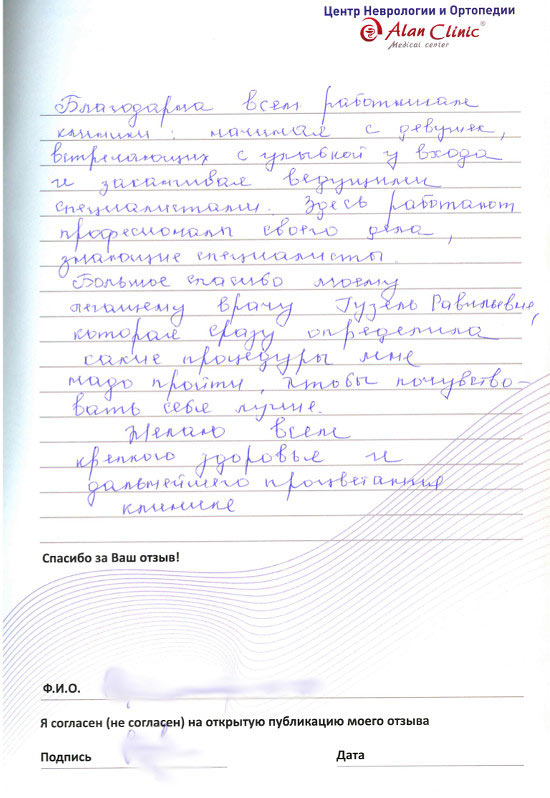 Центр Неврологии и Ортопедии
Alan Clinic®
Medical center
Благодарна всем работникам
клиники: начиная с девушек,
встречающих с улыбкой у входа
и заканчивая ведущими
специалистами. Здесь работают
професионалы своего дела,
знающие специалисты.
Большое спасибо моему
лечащему врачу Гузель Равильевне,
которая сразу определила
какие процедуры мне
надо пройти, чтобы почувство-
вать себя лучше.
Желаю всем
крепкого здоровья и
дальнейшего процветания
клинике
Спасибо за Ваш отзыв!
Ф.И.О.
Я согласен (не согласен) на открытую публикацию моего отзыва
Подпись Дата